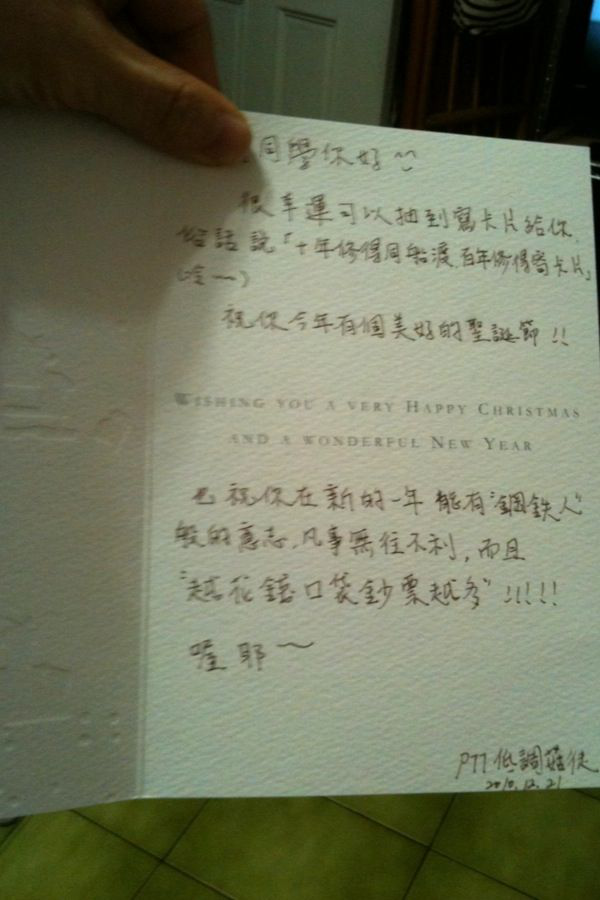 同學你好~
很幸運可以抽到寫卡片給你,
俗話說「十年修得同船渡,百年修得寫卡片」
祝你今年有個美好的聖誕節!!
WISHING YOU A VERY HAPPY CHRISTMAS
AND A WONDERFUL NEW YEAR
也祝你在新的一年 能有"鋼鉄人"
般的意志,凡事無往不利,而且
"越花錢口袋鈔票越多"!!!!!
喔耶~
PTT 低調
2010.12.21